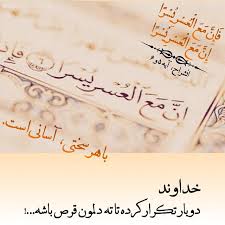 فَإِنَّ مَعَ الْعُسْرِ يُسْرًا
إِنَّ مَعَ الْعُسْرِ يُسْرًا
اِنَّ مَعَ الْعُسْرِ یُسْراً
با هر سختی، آسانی است.
خداوند
دوبار تکرار کرده تا ته دلمون قرص باشه...!